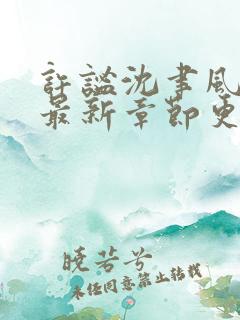 許謐沈聿風
最新章節更
曉芸兮
未经同意禁止转载